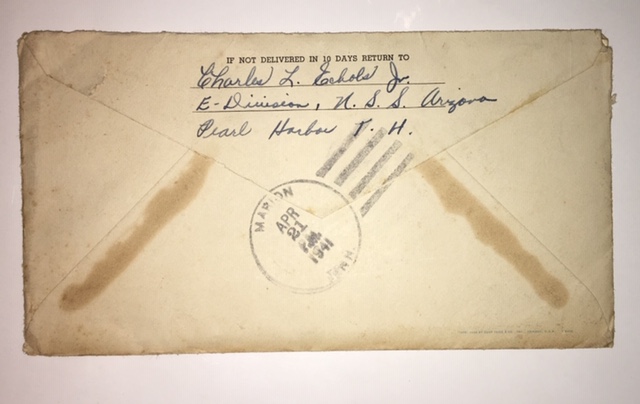 IF NOT DELIVERED IN 10 DAYS RETURN TO
Charles L. Echols Jr.
E-Division, U.S.S. Arizona
Pearl Harbor T. H.
MARION
APR
21
1941